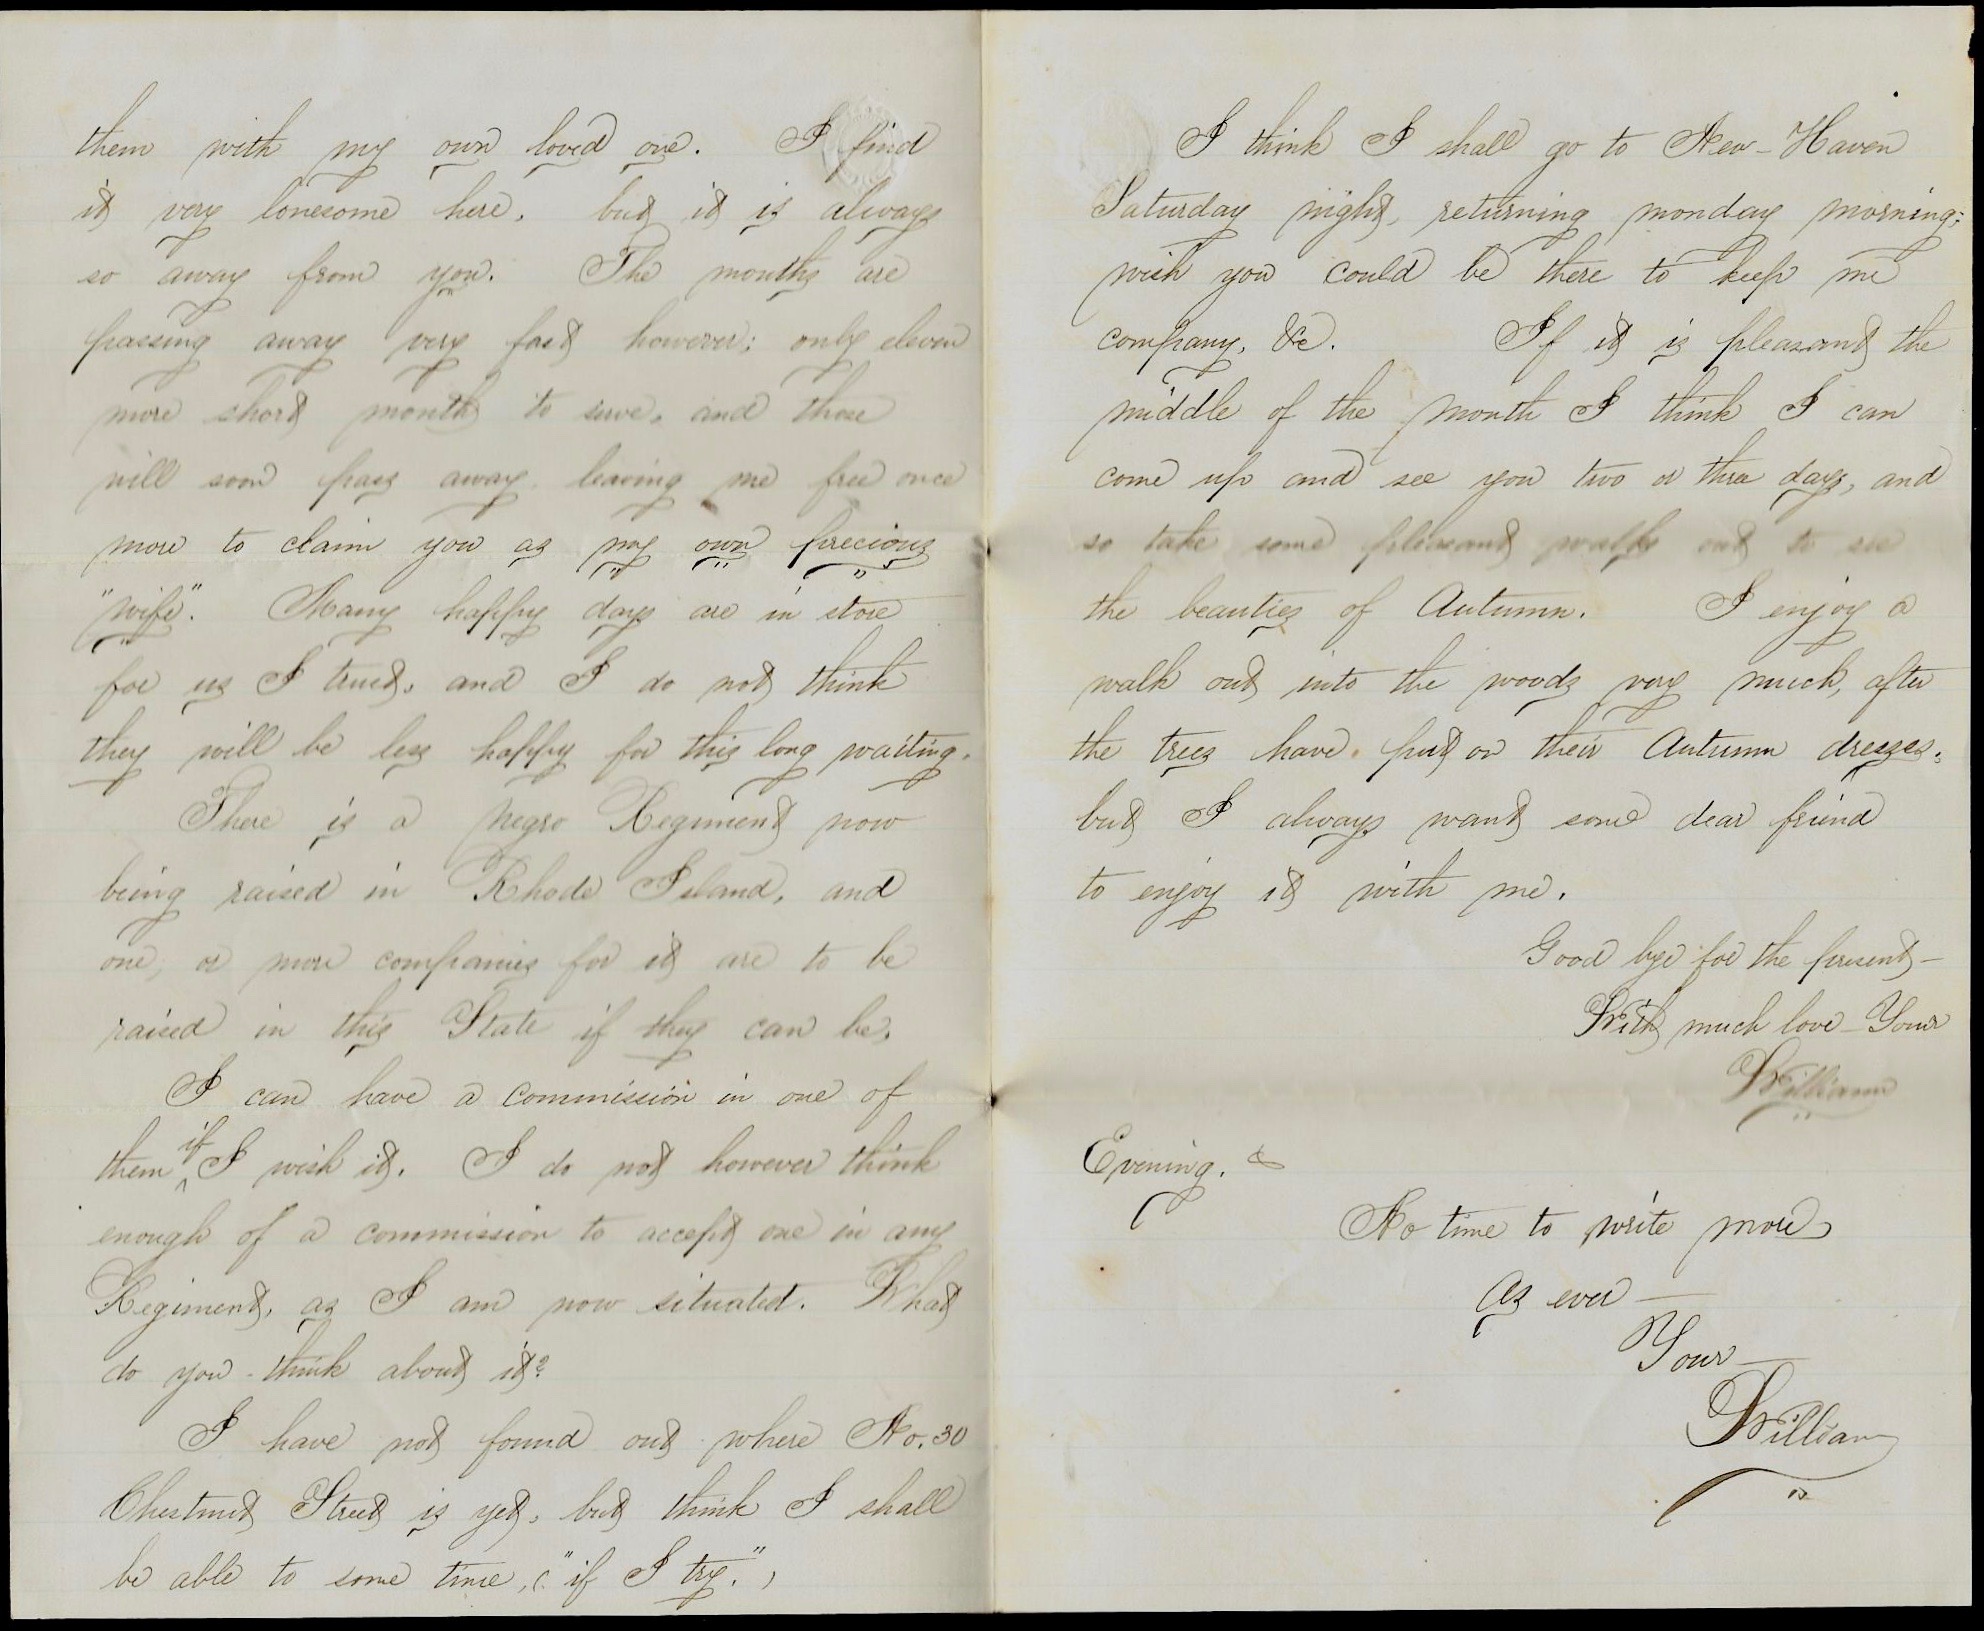 them with my own loved one. I find
it very lonesome here, but it is always
so away from you. The months are
passing away very fast however; only eleven
more short months to serve, and those
will soon pass away leaving me free once
more to claim you as my own precious
"wife". Many happy days are in store
for us I trust, and I do not think
they will be less happy for this long waiting.
There is a negro Regiment now
being raised in Rhode Island, and
one, or more companies for it are to be
raised in this State if they can be.
I can have a commission in one of
them if I wish it. I do not however think
enough of a commission to accept one in any
Regiment, as I am now situated. What
do you think about it?
I have not found out where No. 30
Chestnut Street is yet, but think I shall
be able to some time, ("if I try.")
I think I shall go to New-Haven
Saturday night, returning monday morning;
wish you could be there to keep me
company, &c. If it is pleasant the
middle of the month I think I can
come up and see you two or three days, and
so take some pleasant walks out to see
the beauties of Autumn. I enjoy a
walk out into the woods very much, after
the trees have put on their Autumn dresses,
but I always want some dear friend
to enjoy it with me.
Good bye for the present-
With much love Your
William
Evening.
No time to write more
As ever
Your
William